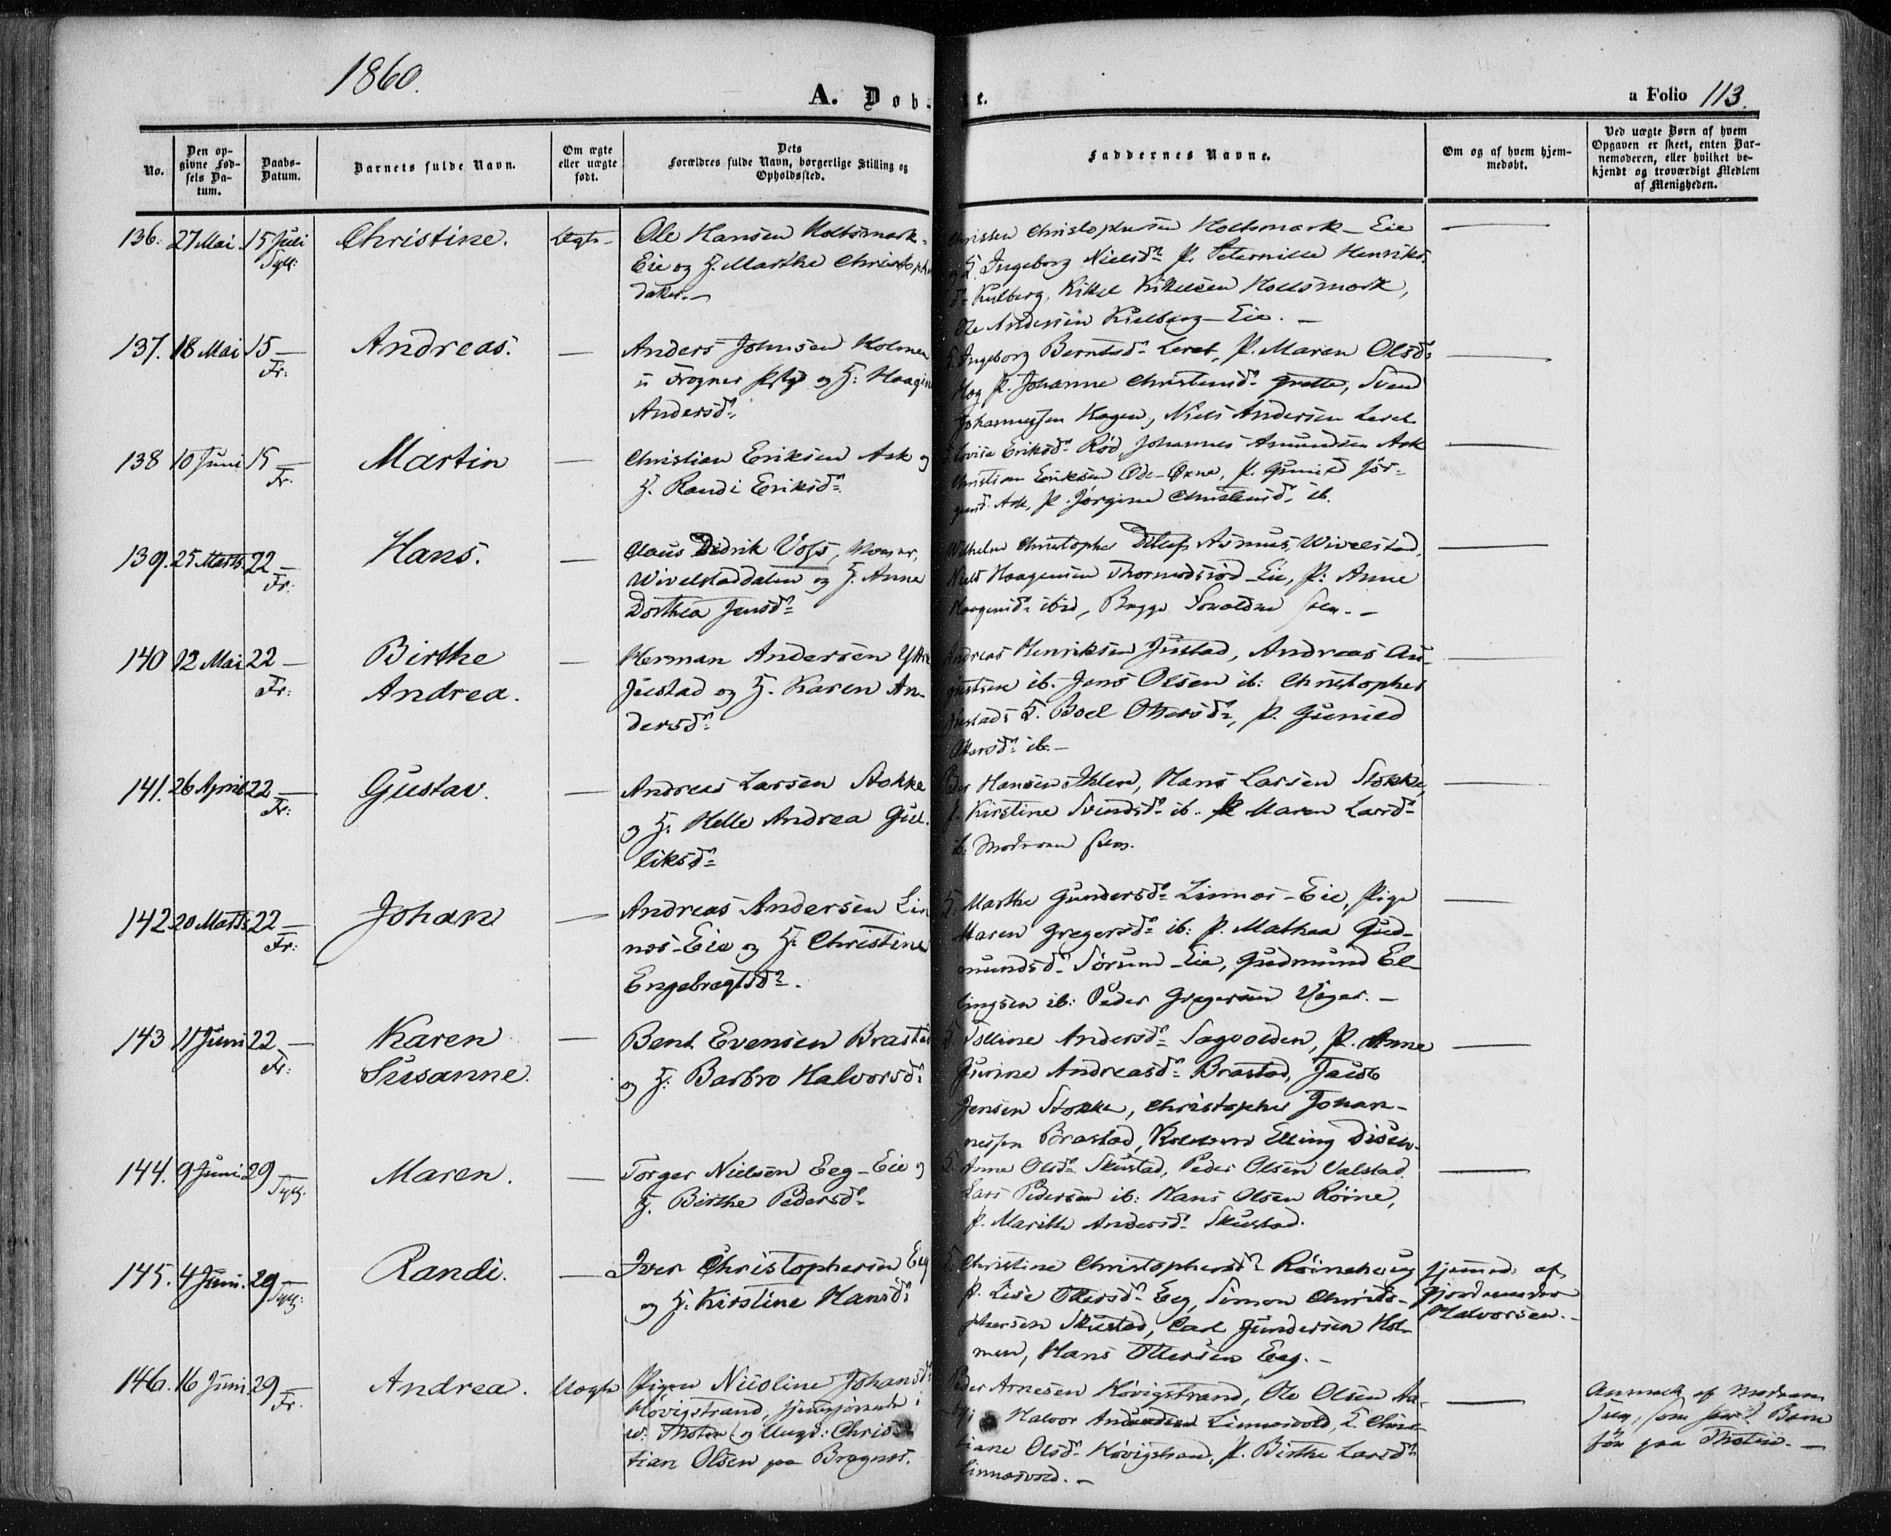 1860.
A. Døb-
te.
a Folio 113.
No.
Den op-
givne Fød-
sels Da-
tum.
Daabs-
Datum.
Barnets fulde Navn.
Om ægte
eller uægte
født.
Dets
Forældres fulde Navn, borgerlige Stilling og
Opholdssted.
Faddernes Navne.
Om og af hvem hjem-
medøbt.
Ved uægte Børn af hvem
Opgaven er skeet, enten Bar-
nemoderen, eller hvilket be-
kjendt og troværdigt Medlem
af Menigheden.
136. 27 Mai. 15 Juli Christine. Ægte
Ole Hansen Holtsmark-
Eie og H. Marthe Christoph
datter.
Christen Christophersen Holtsmark-Eie
Ingeborg Nielsd. P. Peternille Henriks-
d. Kulberg, Kittel Kittelsen Holtsmark,
Ole Andersen Kulberg-Eie.
137. 18 Mai 15 Fr: Andreas.
Anders Johnsen Holmen
i Frogner og H: Haagine
Andersd.
Ingeborg Berntsd. Leret, P. Maren Olsd.
P. Johanne Christensd. Grette, Svend
Johannessen Hagen, Niels Andersen Leret
138 10 Juni 15 Fr. Martin
Christian Eriksen Ask og
H. Randi Eriksd.
Eriksd. Rød, Johannes Amundsen Ask
Christian Eriksen P. Gunild Jør-
gensd. Ask, P. Jørgine Christensd. ib.
139. 25 Marts 22 Fr: Hans.
Claus Didrik Vofs,
Wivelstaddalen og H. Anne
Dorthea Jensd.
Wilhelm Christopher Detlef Asmus, Wivelstad,
Niels Haagensen Thormodsrød-Eie, P: Anne
Haagensd. ibid,
140 12 Mai 22 Fr: Birthe
Andrea.
Herman Andersen Ytre
Justad og H. Karen An-
dersd.
Andreas Henriksen Justad, Andreas Au-
gustsen ib. Jens Olsen ib: Christopher
Justad, H. Boel Ottersd. P. Gunild
Ottersd. ib.
141. 26 April 22 Fr: Gustav.
Andreas Larsen Stokke
og H: Helle Andrea Gul-
liksd.
Peder Hansen Ihlen, Hans Larsen Stokke,
P. Kirstine Svendsd. ib. P Maren Larsd.
ib:
142 20 Marts 22 Fr: Johan
Andreas Andersen Lin
nos-Eie og H: Christine
Engebregtsd.
H: Marthe Gundersd. Linnos-Eie, Pige
Maren Gregersd. ib: P. Mathea Gud-
mundsd. Sørum-Eie, Gudmund El-
lingsen ib: Peder Gregersen
143 11 Juni 22 Fr: Karen
Susanne.
Bent Evensen Brastad
og H. Barbro Halvorsd.
Andersd. Sagvolden, P. Anne
Andreasd. Brastad, Jacob
Jensen Stokke, Christopher Johan-
nessen Brastad, Elling
144. 9 Juni 29 Maren.
Torger Nielsen Eeg-Eie og
H. Birthe Pedersd.
H. Anne Olsd. Skustad, Peder Olsen Valstad
Lars Pedersen ib: Hans Olsen Røine,
P. Marithe Andersd. Skustad.
145. 4 Juni. 29 Randi.
Iver Christophersen Eeg
og H: Kirstine Hansd:
Christine Christophersd. Røinehoug
P. Lise Ottersd. Eeg, Simon Christo-
phersen Skustad, Carl Gundersen Hol-
men, Hans Ottersen Eeg.
hjemmed: af
Gjordemoder
Halvorsen.
146. 16 Juni 29 Fr. Andrea. Uægte
Pigen Nicoline Johansd.
Høvigstrand,
Thoten og Ungk: Chris-
tian Olsen paa Bragnes.
Peder Arnesen Høvigstrand, Ole Olsen Aa-
by, Halvor Linnosvold,
tiane Olsd. Høvigstrand, P. Birthe Larsd.
Linnosvold.
Anmeldt af Moderen
som Barn
før paa Thoten.